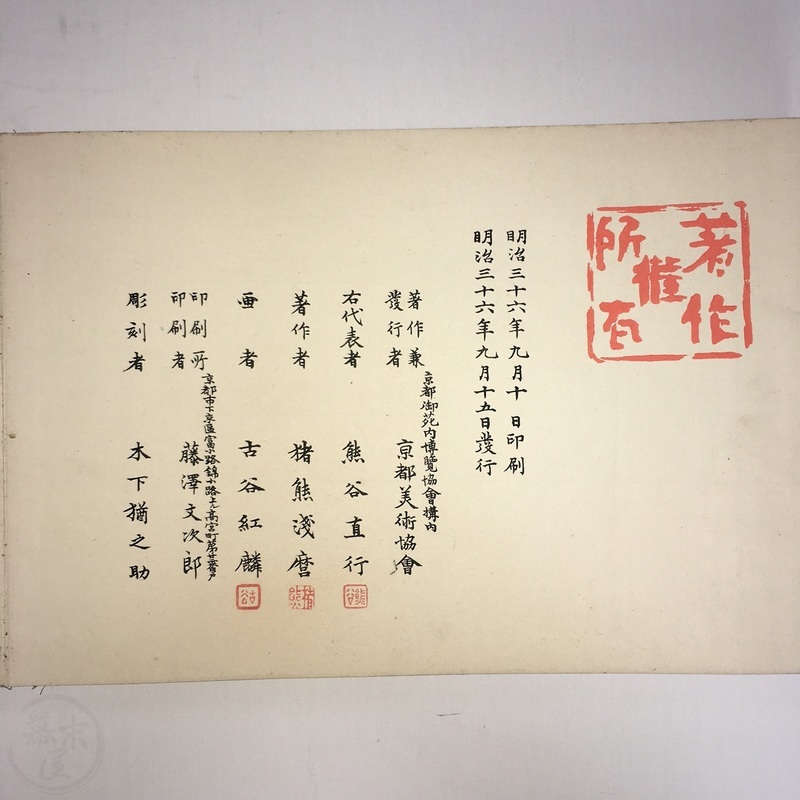 著作
權
所有
明治三十六年九月十日印刷
明治三十六年九月十五日發行
京都御苑内博覽協會構内
著作兼
發行者
京都美術協會
右代表者 熊谷直行
著作者 猪熊淺麿
画者 古谷紅麟
京都市下京區富小路錦小路上ル高宮町第廿番戸
印刷所
印刷者 藤澤文次郎
彫刻者 木下猶之助
幕末屋